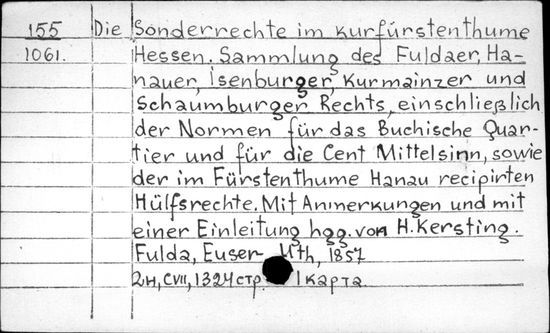 155 Die Sonderrechte im Kurfürstenthume
1061. Hessen. Sammlung des Fuldaer, Ha-
nauer, Isenburger, Kurmainzer und
Schaumburger Rechts, einschließlich
der Normen für das Buchische Quar-
tier und für die Cent Mittelsinn, sowie
der im Fürstenthume Hanau recipirten
Hülfsrechte. Mit Anmerkungen und mit
einer Einleitung hgg. von H. Kersting.
Fulda, Euser Uth, 1857
2н, CVII, 1324 стр. 1 карта